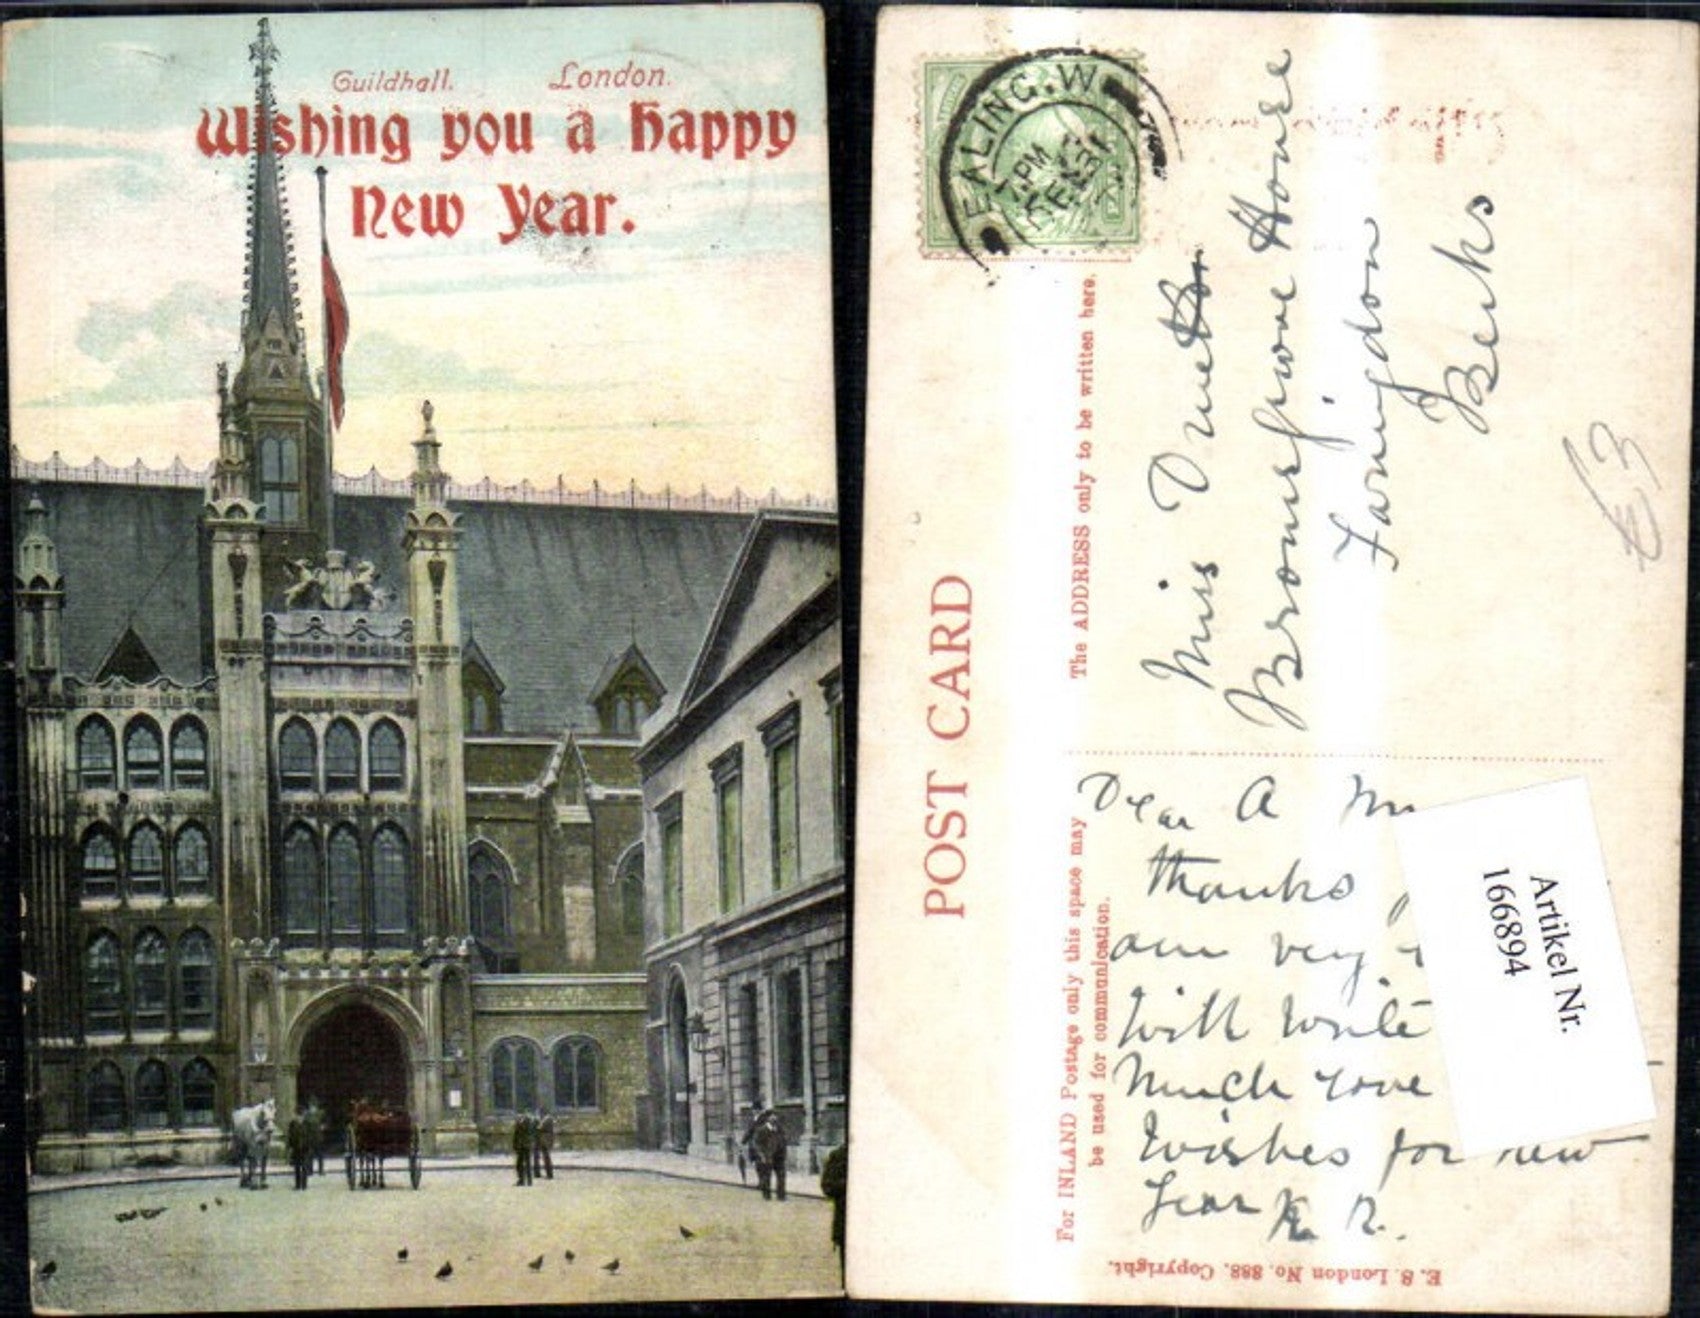 Guildhall. London.
Wishing you a Happy
New Year.
EALING.W
PM
DE 31
POST CARD
The ADDRESS only to be written here.
Miss
Bromsgrove House
Faringdon
Berks
£3
For INLAND Postage only this space may
be used for communication.
Dear A
thanks
am very
will write
Much love
Wishes for new
Year K. R.
Artikel Nr.
166894
E. S. London No. 888. Copyright.